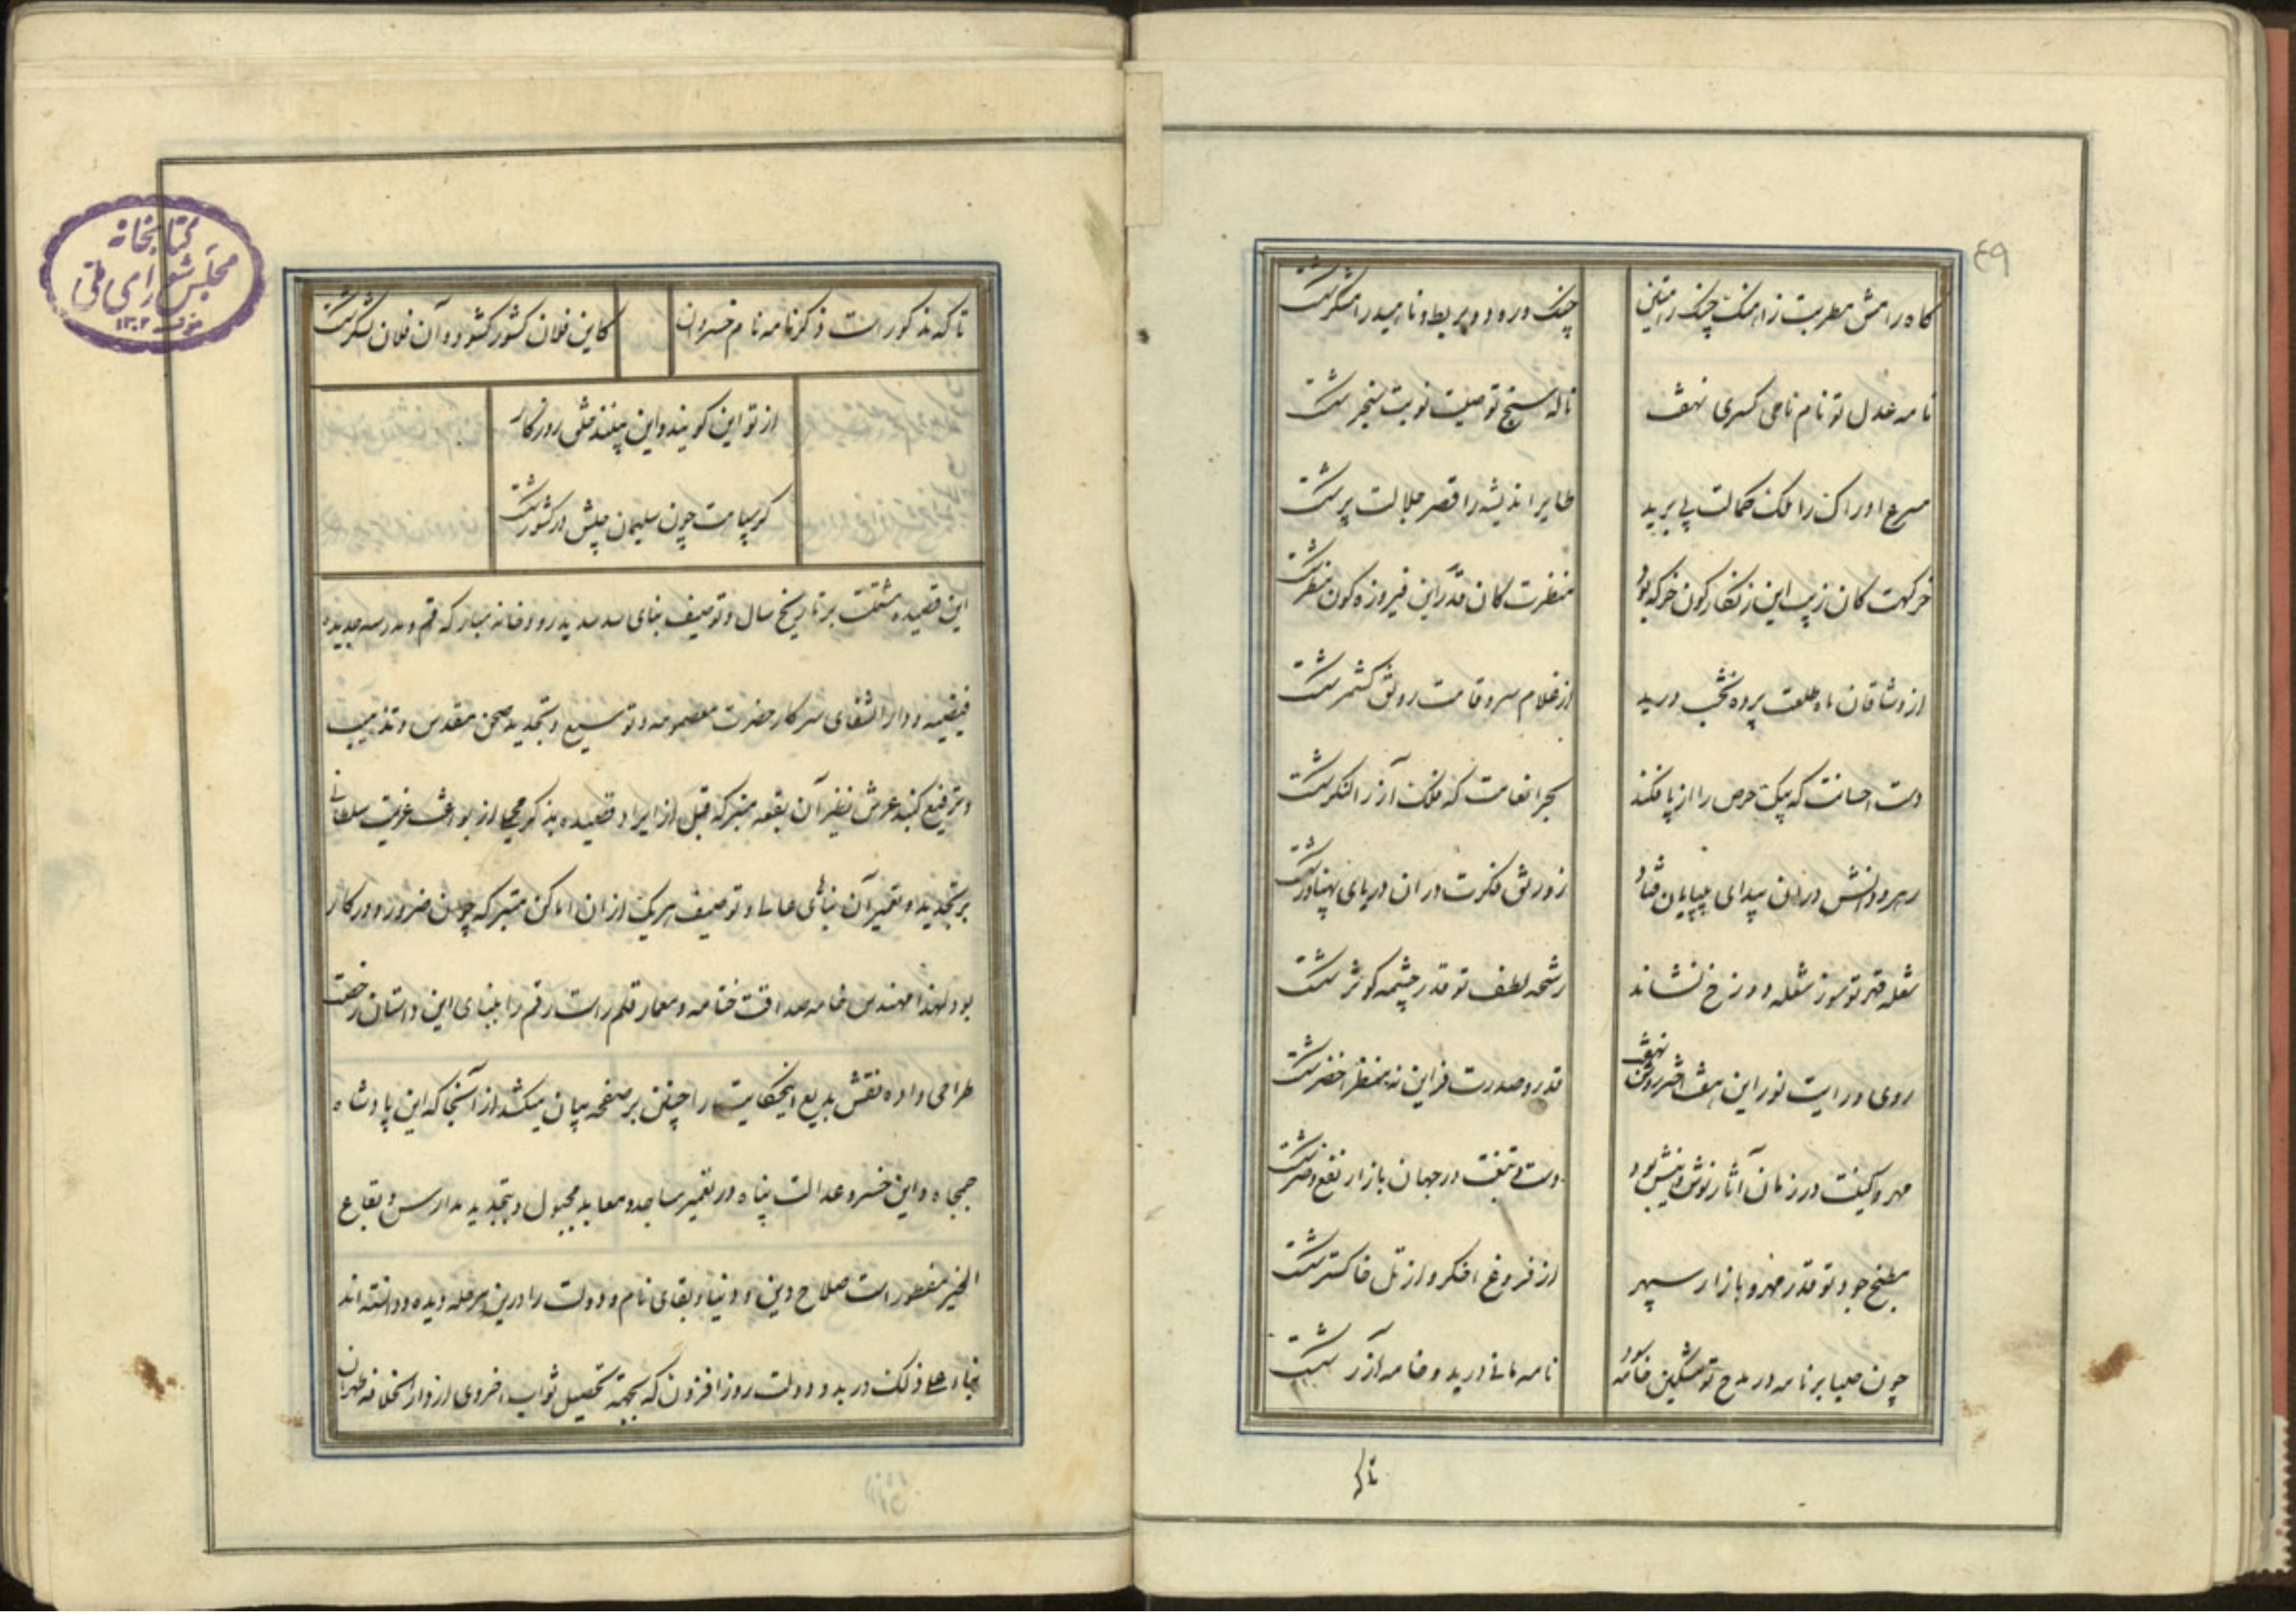 ٤٩
گاه رامش مطربت ز آهنگ چنگ رامتین
چنگ در رود و بربط و ناهید رامشگر شکست
نامه عدل تو نام نامی کسری نهفت
ناله سنج تو صیت نوبت سنجر شکست
مسرع ادراک را ملک کمالت پی برید
طایر اندیشه را قصر جلالت پر شکست
خرگهت کان زیب این زنگارگون خرگه بود
منظرت کان قدر این فیروزه گون منظر شکست
از وشاقان ماه طلعت پرده نخشب درید
از غلام سرو قامت رونق کشمر شکست
دست احسانت که پیک حرص را از پا فکند
بحر انعامت که فلک آز را لنگر شکست
رهرو دانش در آن بیدای بی‌پایان فتاد
زورق فکرت در آن دریای پهناور شکست
شعله قهر تو سوز شعله دوزخ نشاند
رشحه لطف تو قدر چشمه کوثر شکست
روی و رایت نور این هفت اختر روشن نهفت
قدر و صدرت فر این نه منظر اخضر شکست
مهر و کینت در زمان آثار نوش و نیش بود
دست و تیغت در جهان بازار نفع و ضر شکست
مطبخ جود تو قدر مهر و بازار سپهر
از فروغ اخگر و از تل خاکستر شکست
چون صبا بر نامه در مدح تو مشکین خامه سود
نامه مانی درید و خامه آزر شکست
تا که
کتابخانه
مجلس شورای ملی
١٣٠٢
تا که مذکور است در کرنامه نام خسروان
کاین فلان کشور گشود و آن فلان لشکر شکست
از تو این گویند و این بینند خلق روزگار
کز سپاهت چون سلیمان جیش در کشور شکست
این قصیده مشتملست بر تاریخ سال و توصیف بنای سد سدید رودخانه مبارکه قم و مدرسه جدیده
فیضیه و دار الشفای سرکار حضرت معصومه و توسیع و تجدید صحن مقدس و تذهیب
و ترفیع گنبد عرش نظیر آن بقعه متبرکه قبل از ایراد قصیده بذکر مجملی از بواعث عزیمت سلطانی
بر تجدید و تعمیر آن بناهای عالی و توصیف هر یک از آن اماکن متبرکه چون ضرور و در کار
بود لهذا مهندس خامه صداقت ختامه و معمار قلم راست رقم را ببنای این داستان رخصت
طراحی داده نقش بدیع اینحکایت را چنین بر صفحه بیان میکشد از آنجا که این پادشاه
جمجاه و این خسرو عدالت پناه در تعمیر مساجد و معابد مجبول و بتجدید مدارس و بقاع
الخیر مفطور است صلاح دین و دنیا و بقای نام و دولت را درین مرحله دیده و دانسته اند
بناء علی ذلک در بدو دولت روز افزون که بجهة تحصیل ثواب اخروی از دار الخلافه طهران